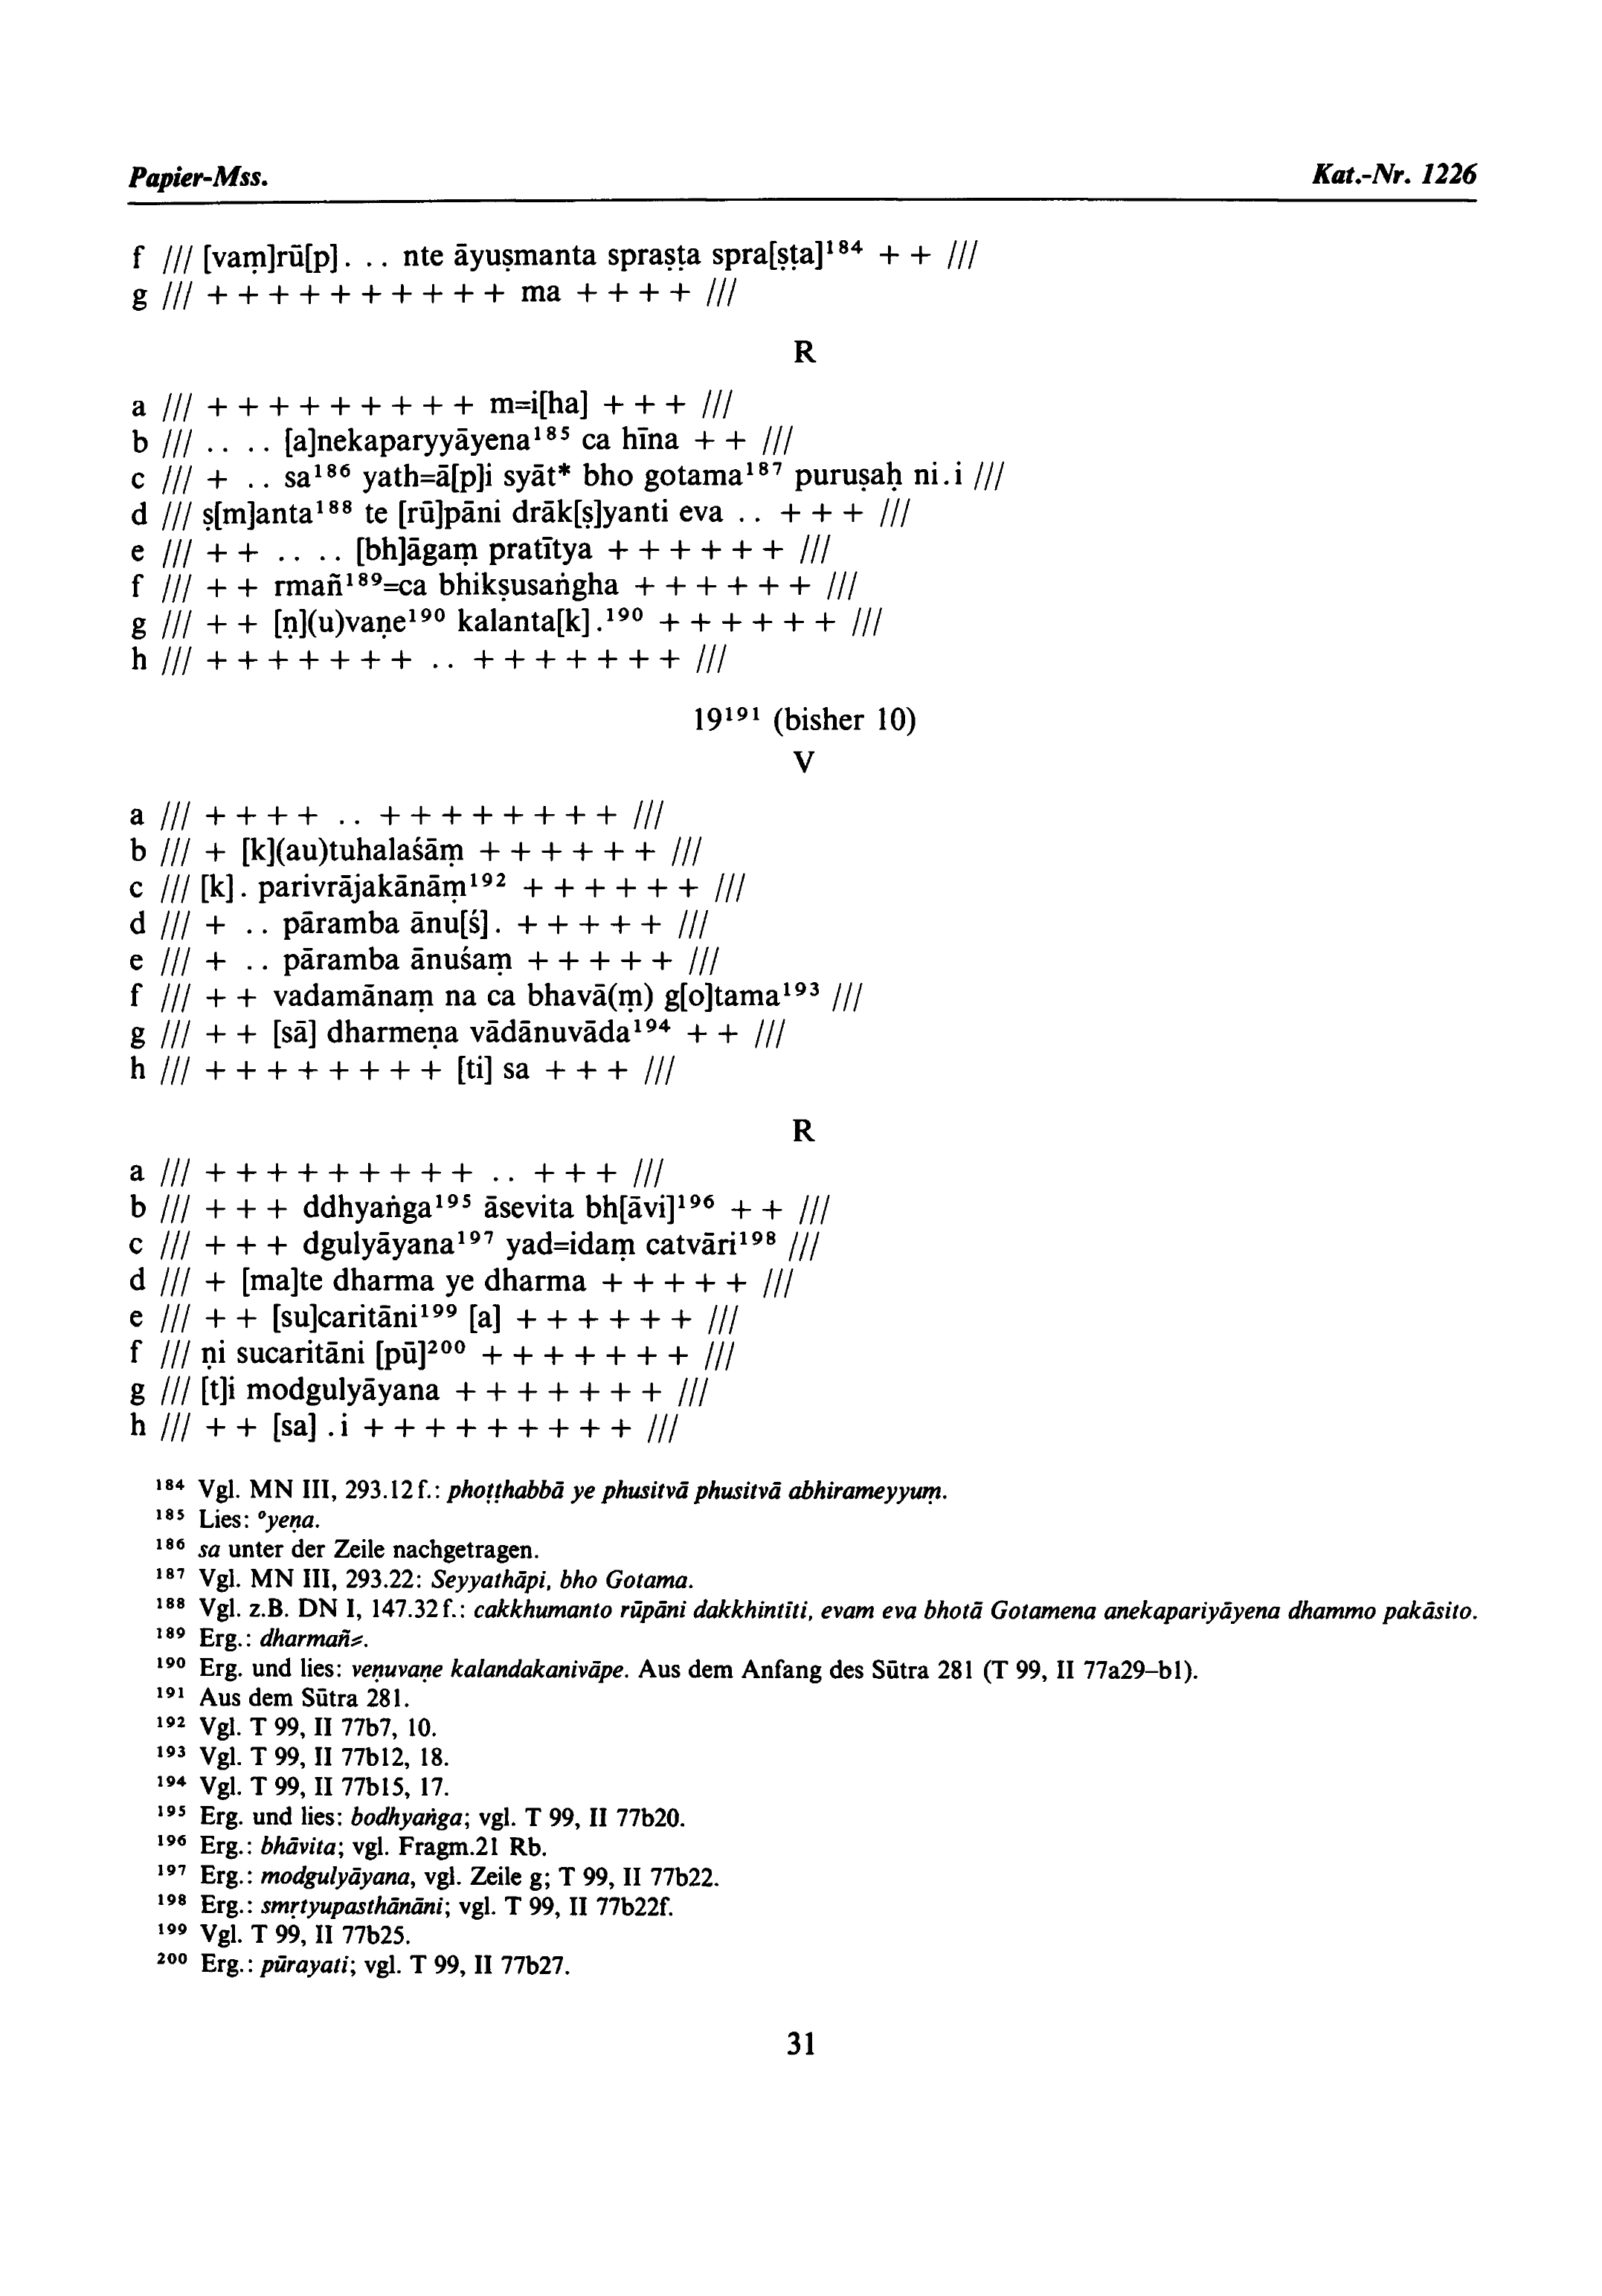 Papier-Mss. Kat.-Nr. 1226
f /// [vaṃ]rū[p]. .. nte āyuṣmanta spraṣṭa spra[ṣṭa]¹⁸⁴ + + ///
g /// + + + + + + + + + + ma + + + + ///
R
a /// + + + + + + + + + m=i[ha] + + + ///
b /// .. .. [a]nekaparyyāyena¹⁸⁵ ca hīna + + ///
c /// + .. sa¹⁸⁶ yath=ā[p]i syāt* bho gotama¹⁸⁷ puruṣaḥ ni.i ///
d /// ṣ[m]anta¹⁸⁸ te [rū]pāni drāk[ṣ]yanti eva .. + + + ///
e /// + + .. .. [bh]āgaṃ pratītya + + + + + + ///
f /// + + rmañ¹⁸⁹=ca bhikṣusaṅgha + + + + + + ///
g /// + + [ṇ](u)vaṇe¹⁹⁰ kalanta[k].¹⁹⁰ + + + + + + ///
h /// + + + + + + + .. + + + + + + + ///
19¹⁹¹ (bisher 10)
V
a /// + + + + .. + + + + + + + + ///
b /// + [k](au)tuhalaśāṃ + + + + + + ///
c /// [k]. parivrājakānāṃ¹⁹² + + + + + + ///
d /// + .. pāramba ānu[ś]. + + + + + ///
e /// + .. pāramba ānuśaṃ + + + + + ///
f /// + + vadamānaṃ na ca bhavā(ṃ) g[o]tama¹⁹³ ///
g /// + + [sā] dharmeṇa vādānuvāda¹⁹⁴ + + ///
h /// + + + + + + + + [ti] sa + + + ///
R
a /// + + + + + + + + + .. + + + ///
b /// + + + ddhyaṅga¹⁹⁵ āsevita bh[āvi]¹⁹⁶ + + ///
c /// + + + dgulyāyana¹⁹⁷ yad=idaṃ catvāri¹⁹⁸ ///
d /// + [ma]te dharma ye dharma + + + + + ///
e /// + + [su]caritāni¹⁹⁹ [a] + + + + + + ///
f /// ṇi sucaritāni [pū]²⁰⁰ + + + + + + + ///
g /// [t]i modgulyāyana + + + + + + + ///
h /// + + [sa] .i + + + + + + + + + ///
¹⁸⁴ Vgl. MN III, 293.12 f.: phoṭṭhabbā ye phusitvā phusitvā abhirameyyuṃ.
¹⁸⁵ Lies: °yeṇa.
¹⁸⁶ sa unter der Zeile nachgetragen.
¹⁸⁷ Vgl. MN III, 293.22: Seyyathāpi, bho Gotama.
¹⁸⁸ Vgl. z.B. DN I, 147.32 f.: cakkhumanto rūpāni dakkhintīti, evam eva bhotā Gotamena anekapariyāyena dhammo pakāsito.
¹⁸⁹ Erg.: dharmañ≠.
¹⁹⁰ Erg. und lies: veṇuvaṇe kalandakanivāpe. Aus dem Anfang des Sūtra 281 (T 99, II 77a29–b1).
¹⁹¹ Aus dem Sūtra 281.
¹⁹² Vgl. T 99, II 77b7, 10.
¹⁹³ Vgl. T 99, II 77b12, 18.
¹⁹⁴ Vgl. T 99, II 77b15, 17.
¹⁹⁵ Erg. und lies: bodhyaṅga; vgl. T 99, II 77b20.
¹⁹⁶ Erg.: bhāvita; vgl. Fragm.21 Rb.
¹⁹⁷ Erg.: modgulyāyana, vgl. Zeile g; T 99, II 77b22.
¹⁹⁸ Erg.: smṛtyupasthānāni; vgl. T 99, II 77b22f.
¹⁹⁹ Vgl. T 99, II 77b25.
²⁰⁰ Erg.: pūrayati; vgl. T 99, II 77b27.
31